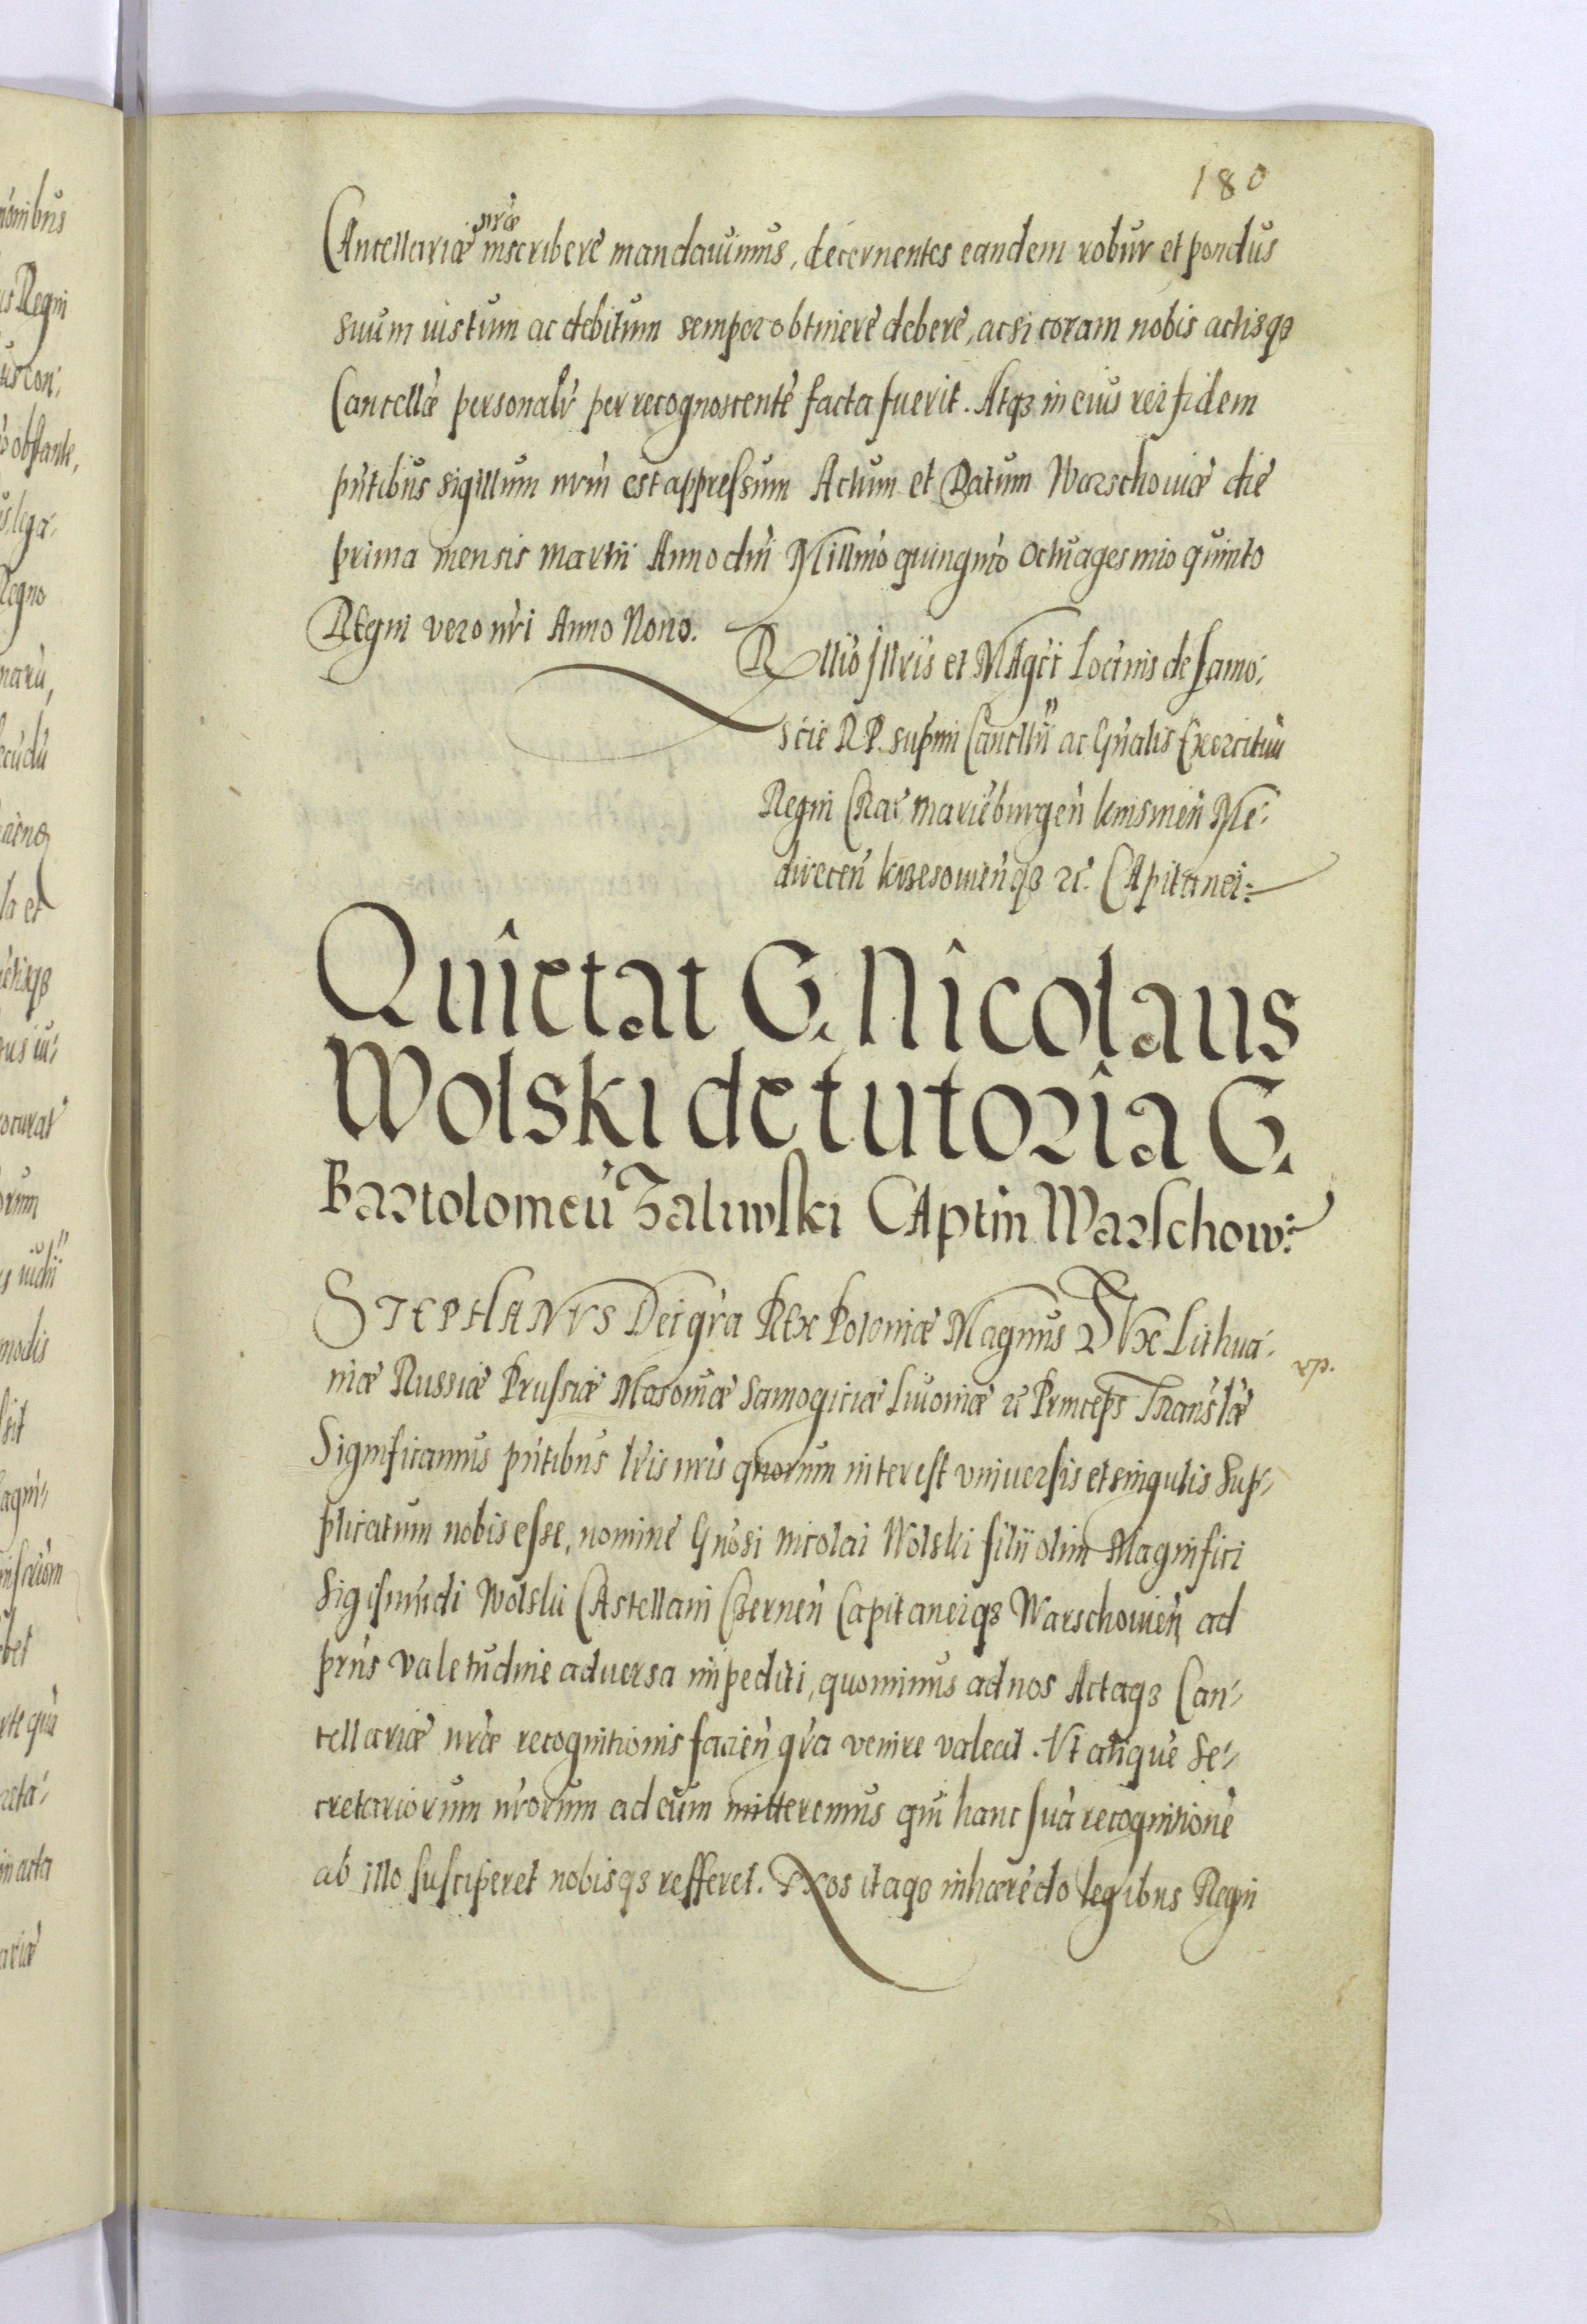 180
Cancellariæ nr̃æ inscribere mandauimus, decernentes eandem robur et pondus
suum iustum ac debitum semper obtinere debere, ac si coram nobis actisqꝫ
Cancellæ personalr̃ per recognoscente facta fuerit. Atqꝫ in eius rei fidem
pñtibus sigillum nrm̃ est appressum Actum et Datum Warschouiæ die
prima mensis martii Anno dni Millmo quingmo Octuagesimo quinto
Regni vero nri Anno Nono.
Rllio Jllris et MAgci Joannis de samo:
scie R P. supmi Cancllii ac Gnalis Exercituu
Regni Crac marieburgen knisinen Me:
direcen krzesouienqꝫ ꝛc. CApitanei:
Quietat G. Nicolaus
Wolski de tutoria G.
Bartolomeu Zaliwski CAptin Warschow:
STEPHANVS Dei gra REx Poloniæ Magnus DVx Lithua:
rp.
niæ Russiæ Prussiæ Masouiæ Samogitiæ Liuoniæ ꝛc Princeps Transl̃æ
Significamus pñtibus lris nris quorum interest vniuersis et singulis Sup:
plicatum nobis esse, nomine Gnosi nicolai Wolski filii olim Magnifici
Sigismundi Wolskii CAstellani Czernen Capitaneiqꝫ Warschouien ad
prns valetudine aduersa impediti, quominus ad nos Actaqꝫ Can:
cellariæ nræ recognitionis facien gra venire valeat. Vt aliquē Se:
cretariorum nrorum ad eum mitteremus qui hanc suā recognitionē
ab illo susciperet nobisqꝫ refferet. Nos itaqꝫ inhærēdo legibus Regni